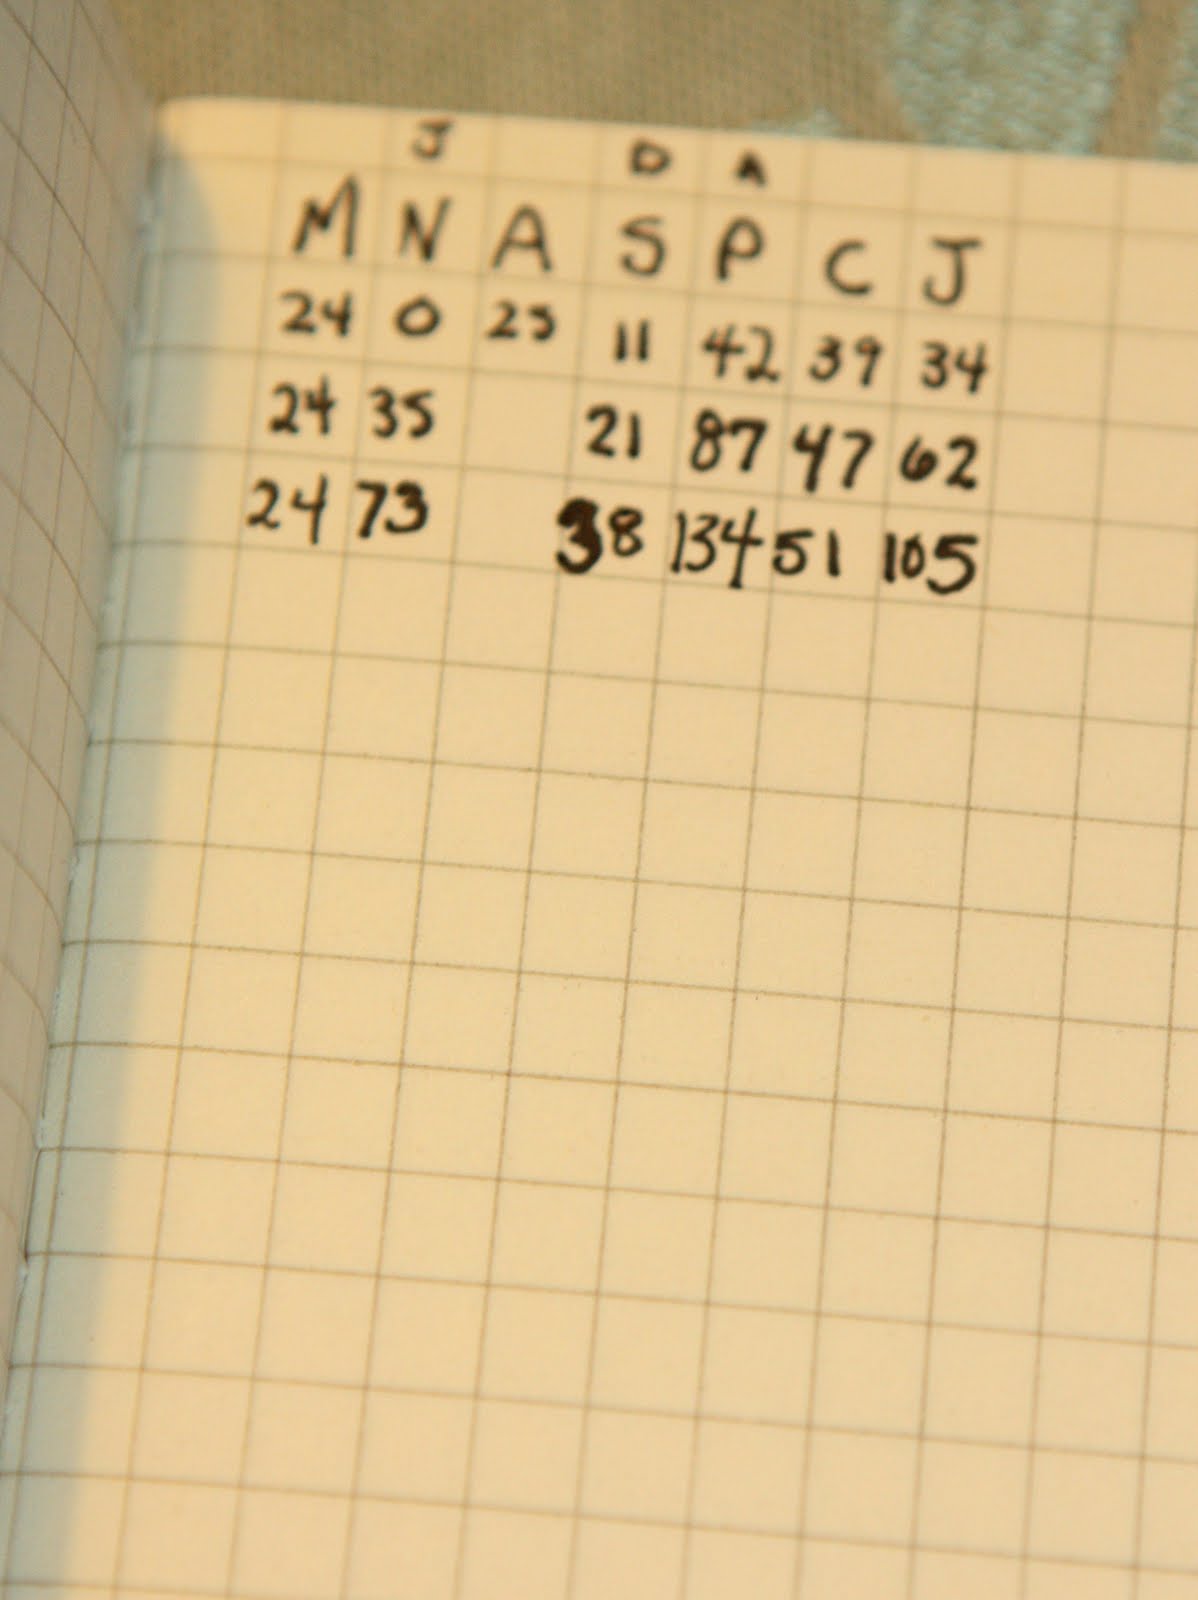 J D A
M N A S P C J
24 0 25 11 42 39 34
24 35 21 87 47 62
24 73 38 134 51 105